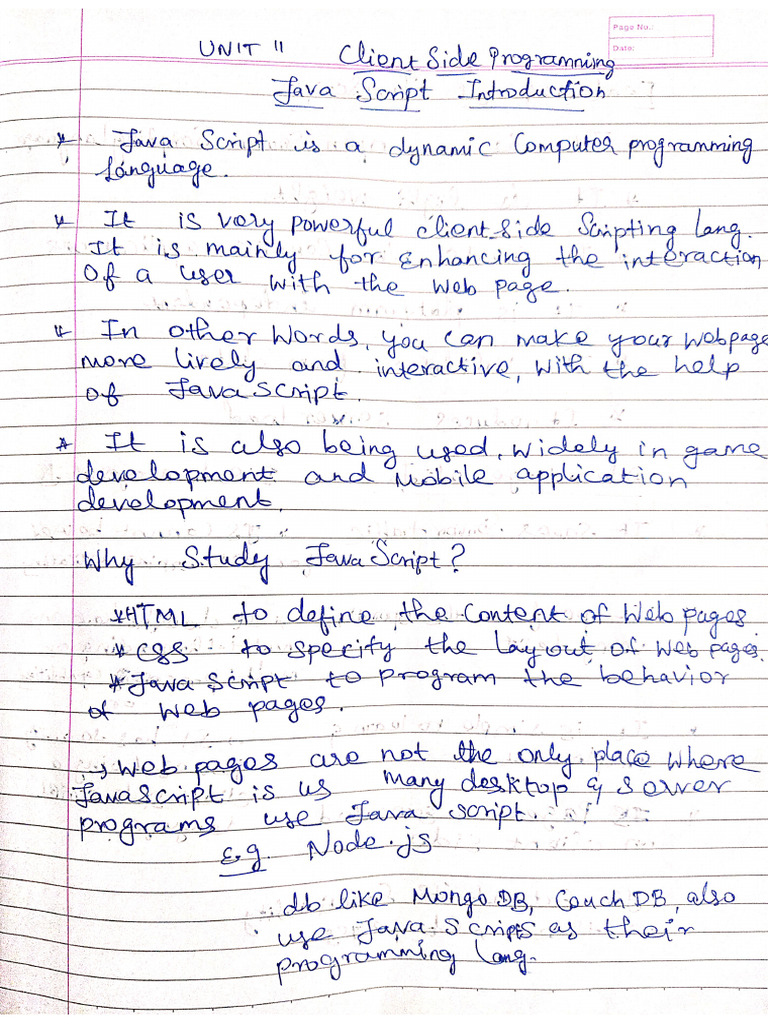 Page No.:
Date:
UNIT II Client Side Programming
Java Script Introduction
* Java Script is a dynamic Computer programming
Language.
* It is very powerful client-side Scripting lang.
It is mainly for enhancing the interaction
of a user with the web page.
* In other words, you can make your webpage
more lively and interactive, with the help
of JavaScript.
* It is also being used, widely in game
development and Mobile application
development.
Why Study JavaScript?
*HTML to define the content of Web pages
* CSS to specify the layout of web pages.
*Java Script to program the behavior
of web pages.
→ Web pages are not the only place where
JavaScript is us many desktop & server
programs use Java script.
E.g. Node.js
db like MongoDB, CouchDB, also
use Java Scripts as their
programming lang.